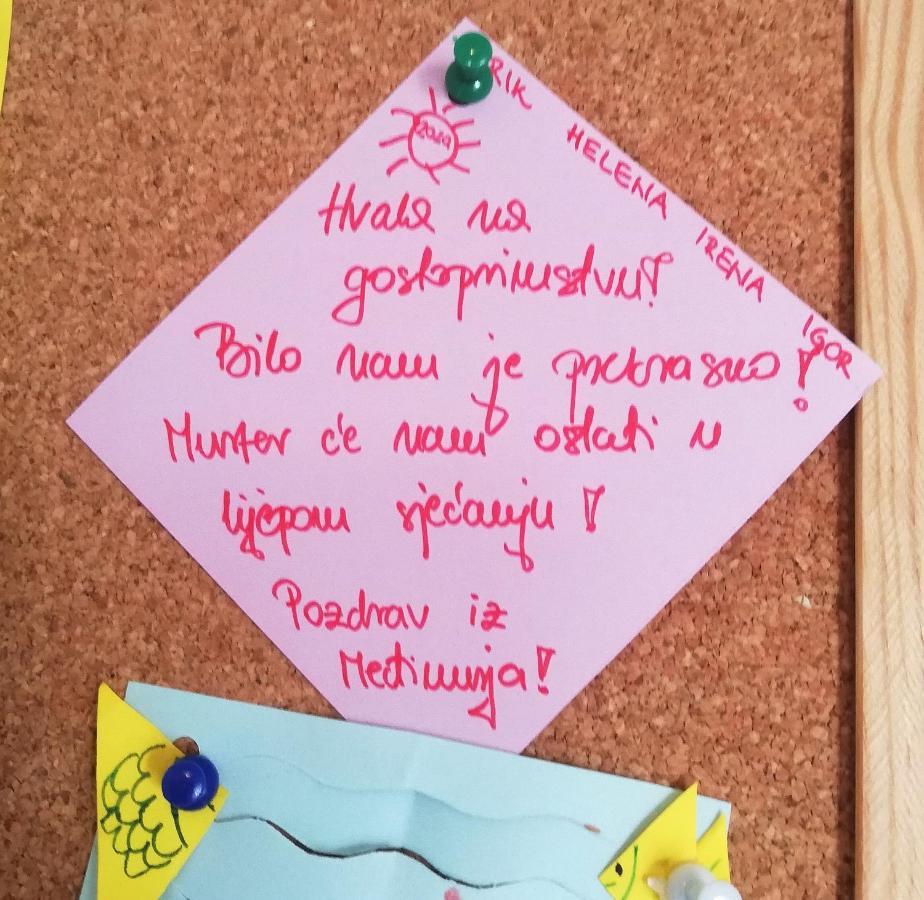 2020
RIK
HELENA
IRENA
IGOR
Hvala na
gostoprimstvu!
Bilo nam je prekrasno!
Murter će nam ostati u
lijepom sjećanju!
Pozdrav iz
Međimurja!